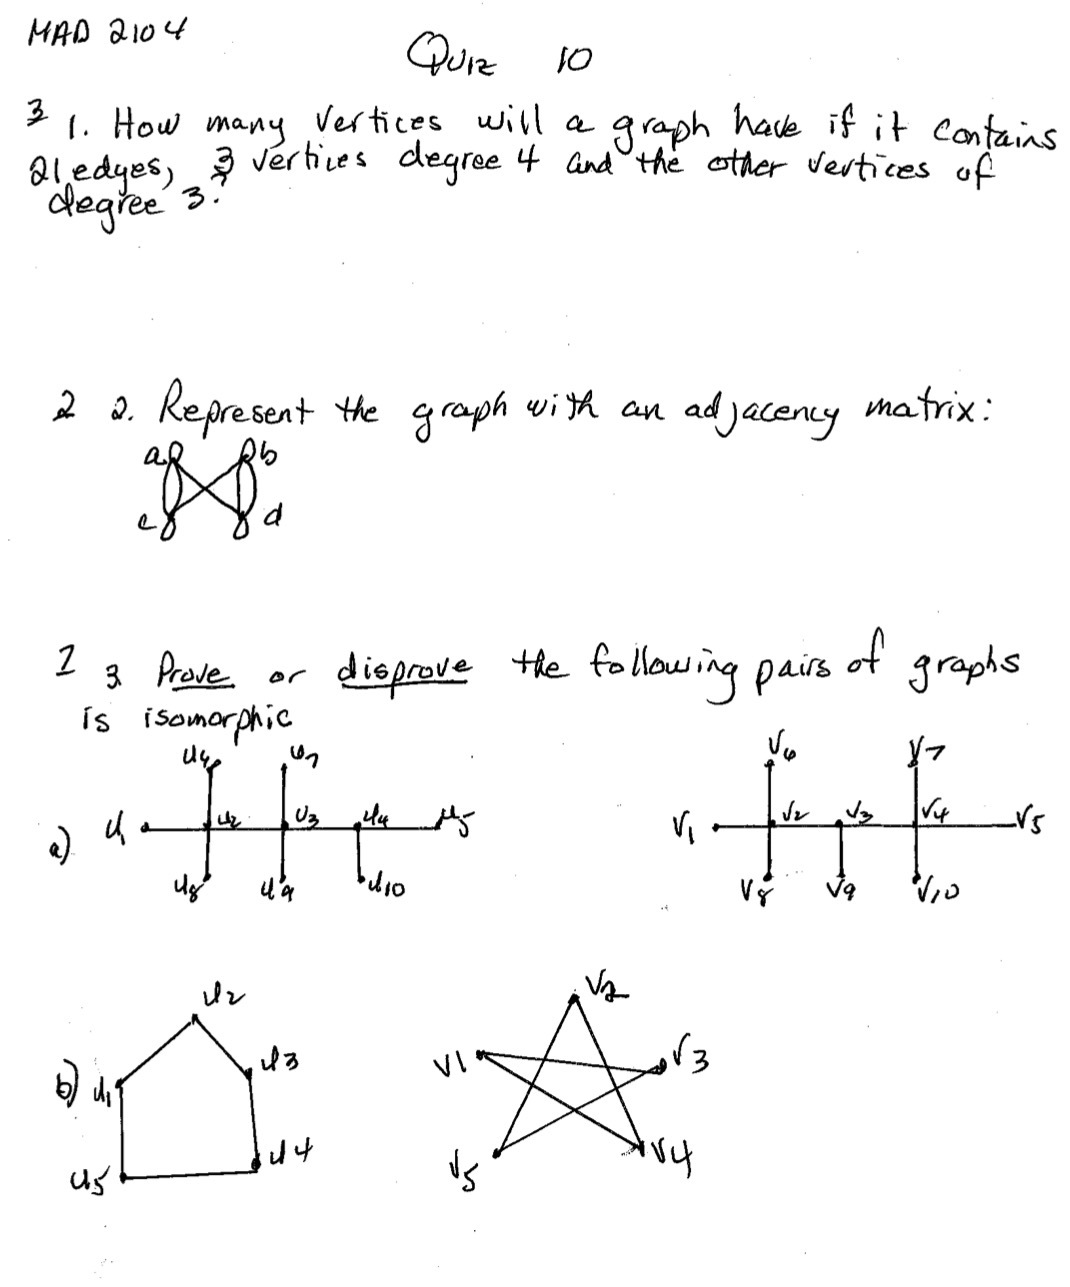 MAD 2104
Quiz 10
3 1. How many vertices will a graph have if it contains
21 edges, 3 vertices degree 4 and the other vertices of
degree 3?
2 2. Represent the graph with an adjacency matrix:
a b
c d
2 3 Prove or disprove the following pairs of graphs
is isomorphic
u6 u7 V6 V7
a) u1 u2 u3 u4 u5 V1 V2 V3 V4 V5
u8 u9 u10 V8 V9 V10
u2 V2
b) u1 u3 V1 V3
u5 u4 V5 V4